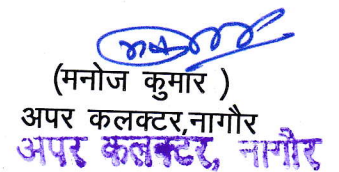 (मनोज कुमार )
अपर कलक्टर,नागौर
अपर कलक्टर, नागौर